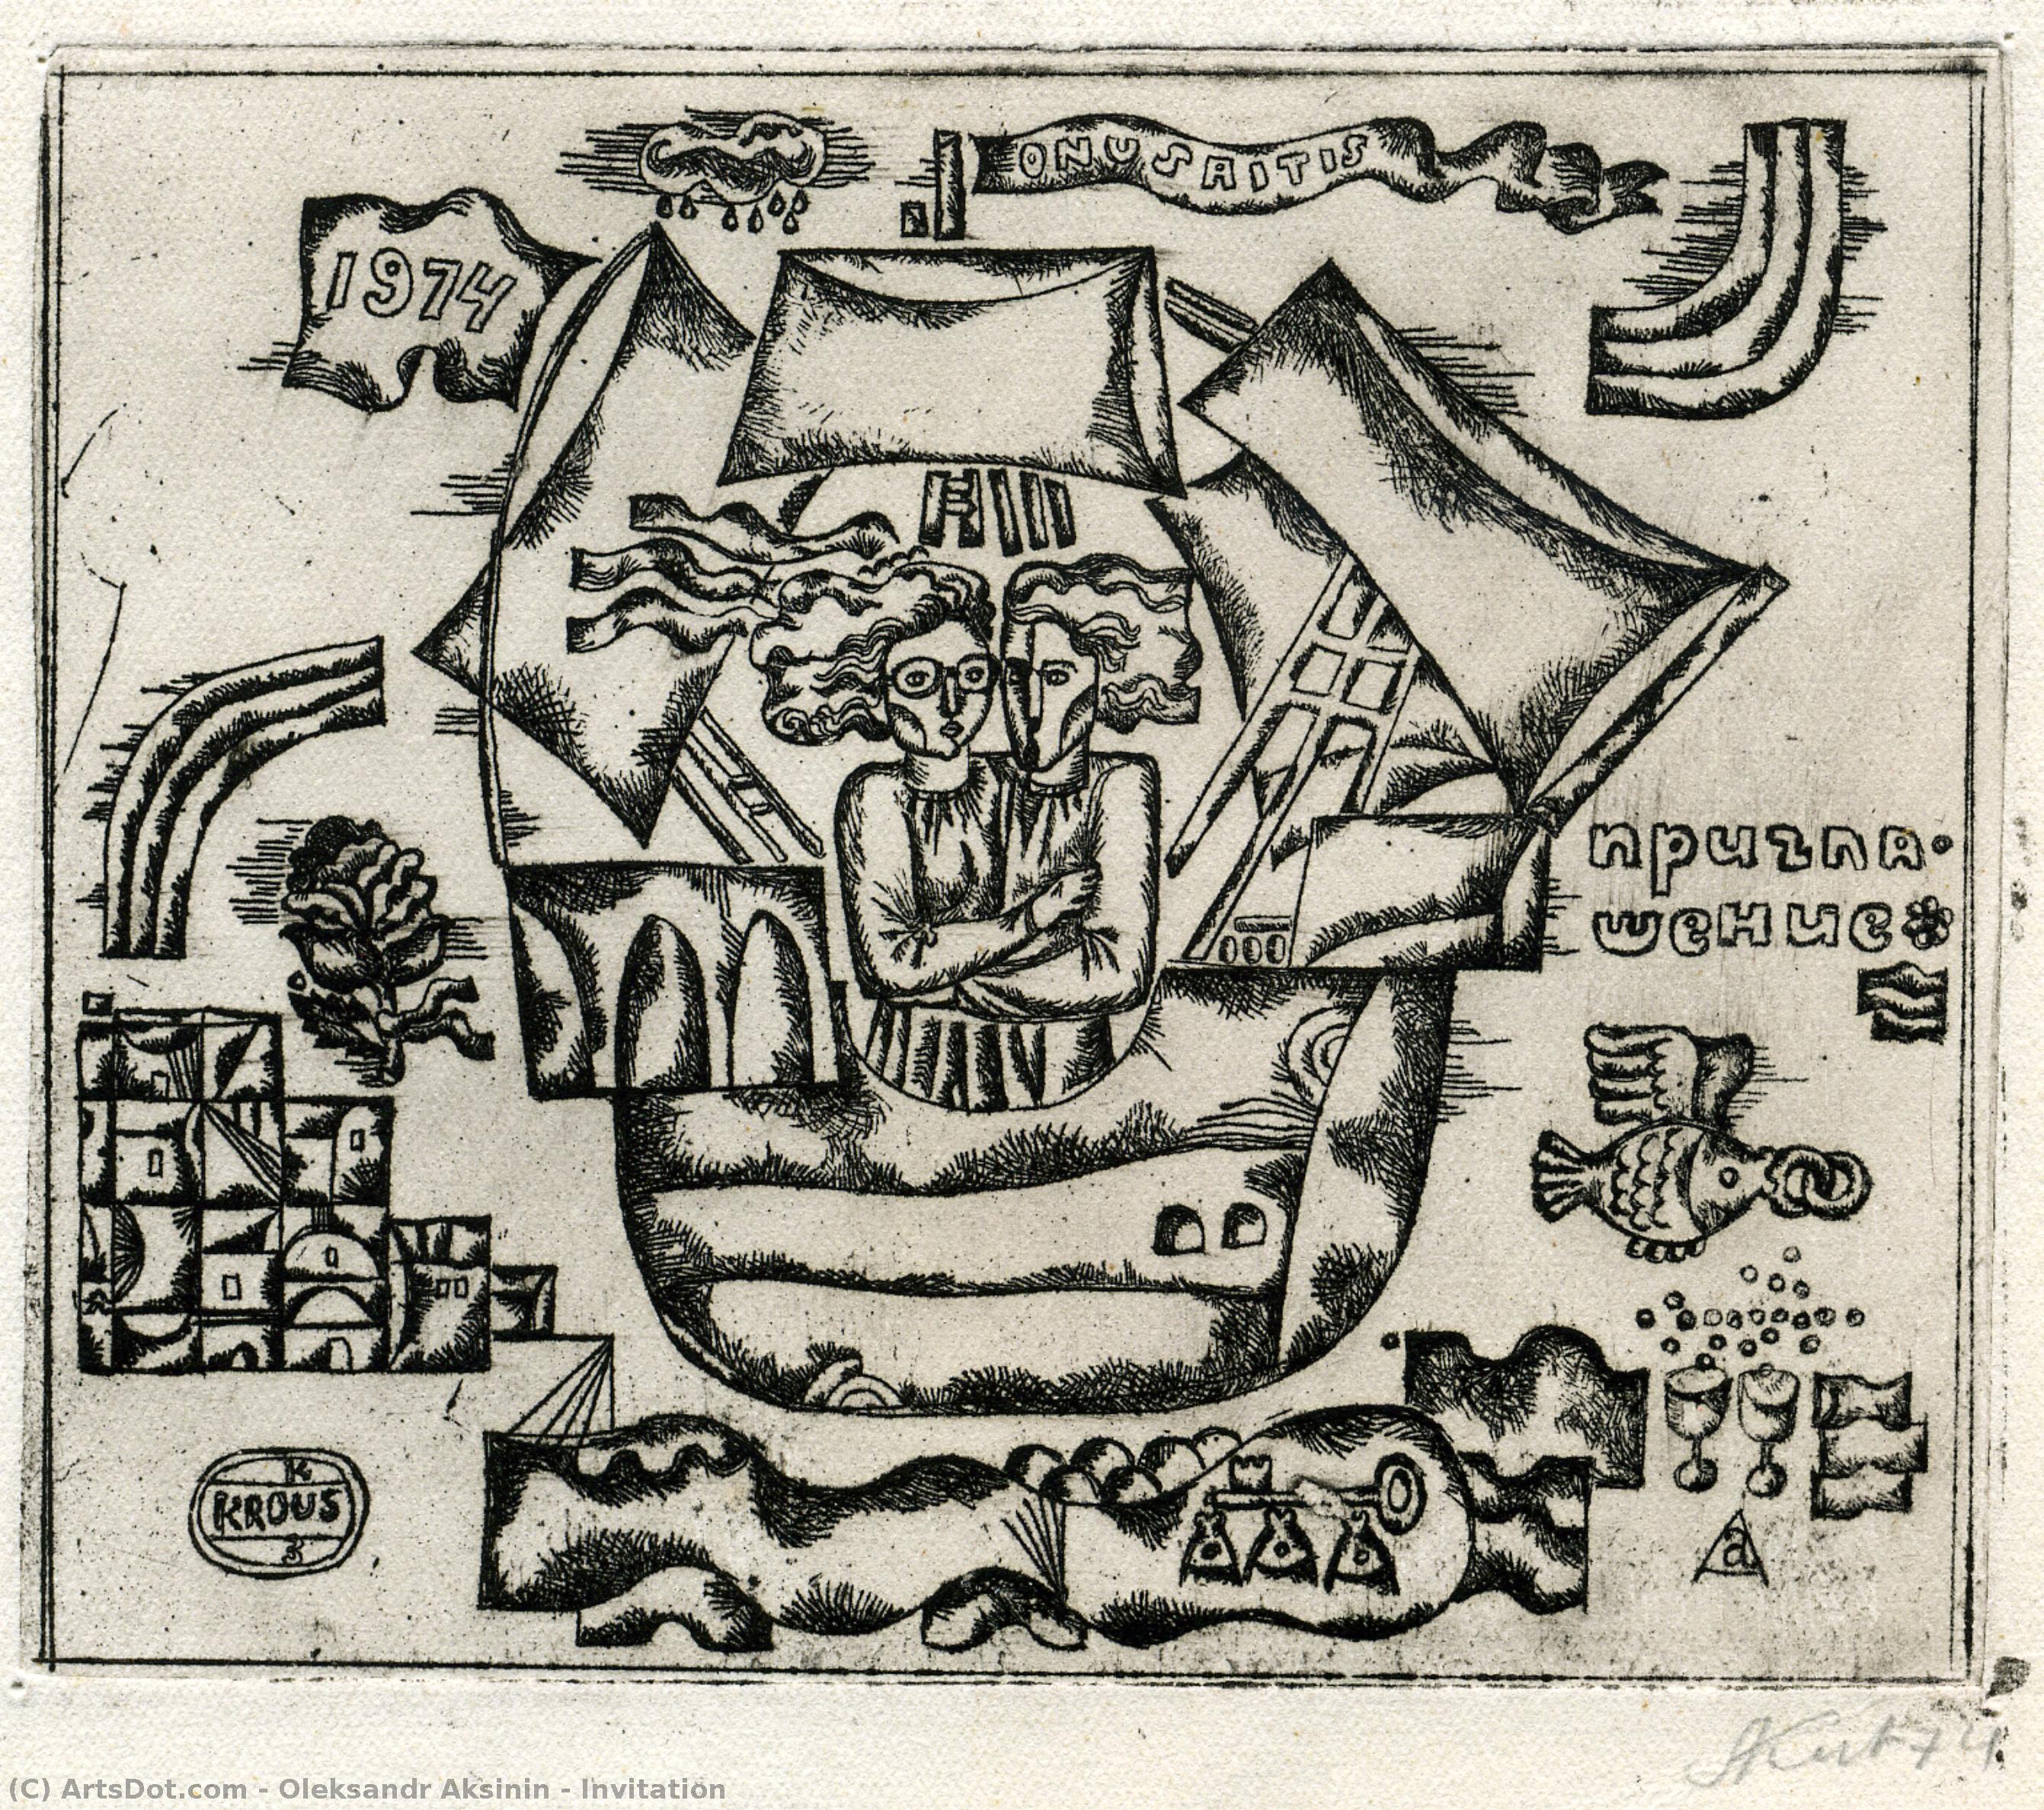 ONUSAITIS
1974
пригла-
шение*
K
KROUS
3
a
(C) ArtsDot.com - Oleksandr Aksinin - Invitation